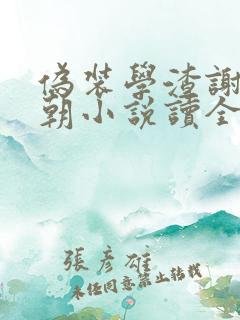 偽裝學渣謝
朝小說讀全
張彥雄
未經同意禁止轉載